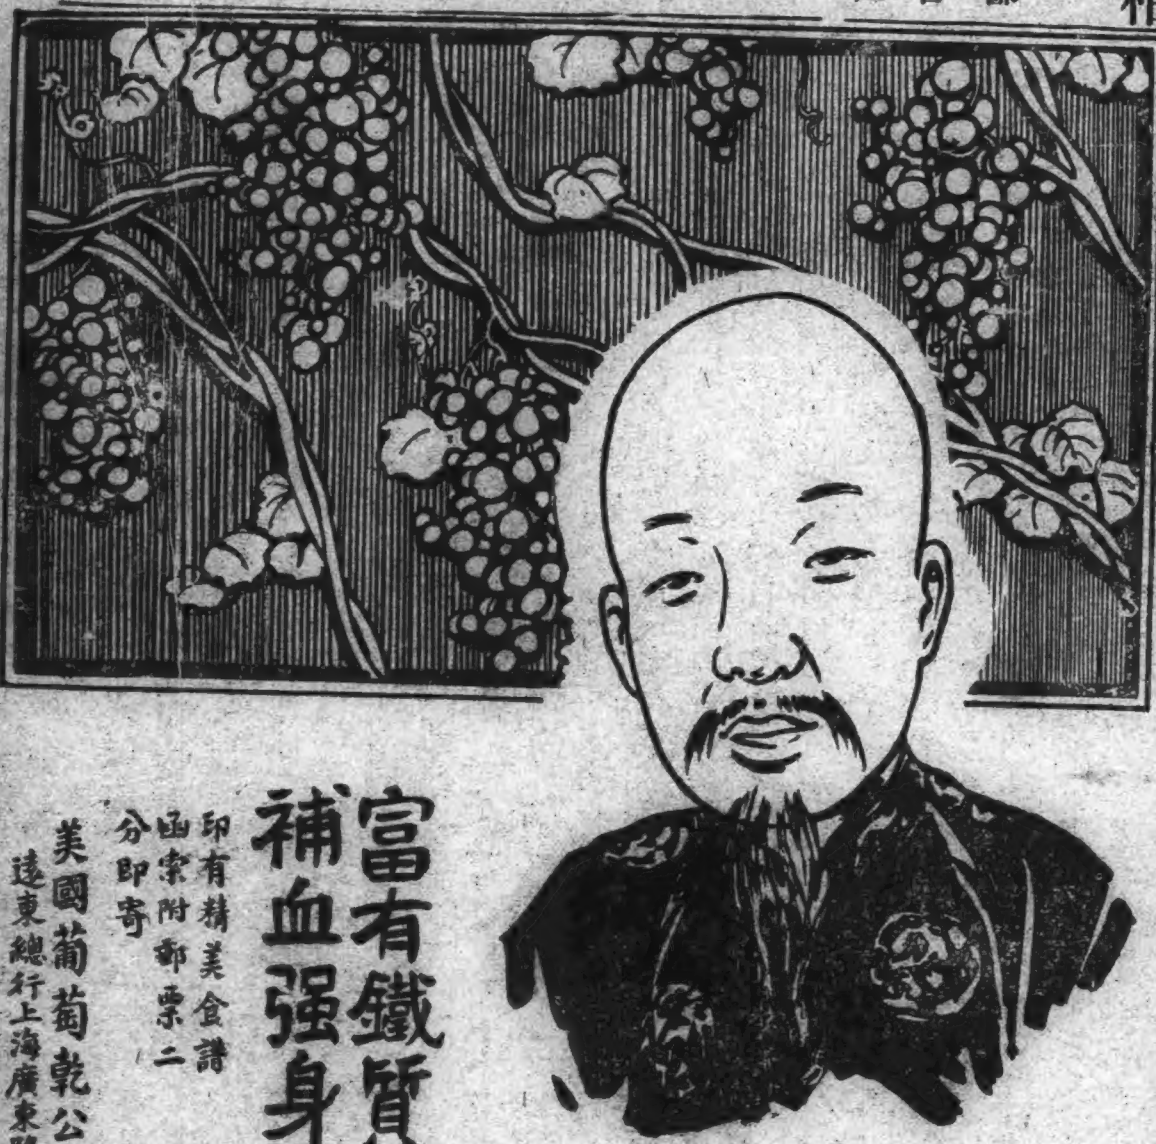 富有鐵質
補血强身
印有精美食譜
函索附郵票二
分即寄
美國葡萄乾公
遠東總行上海廣東路